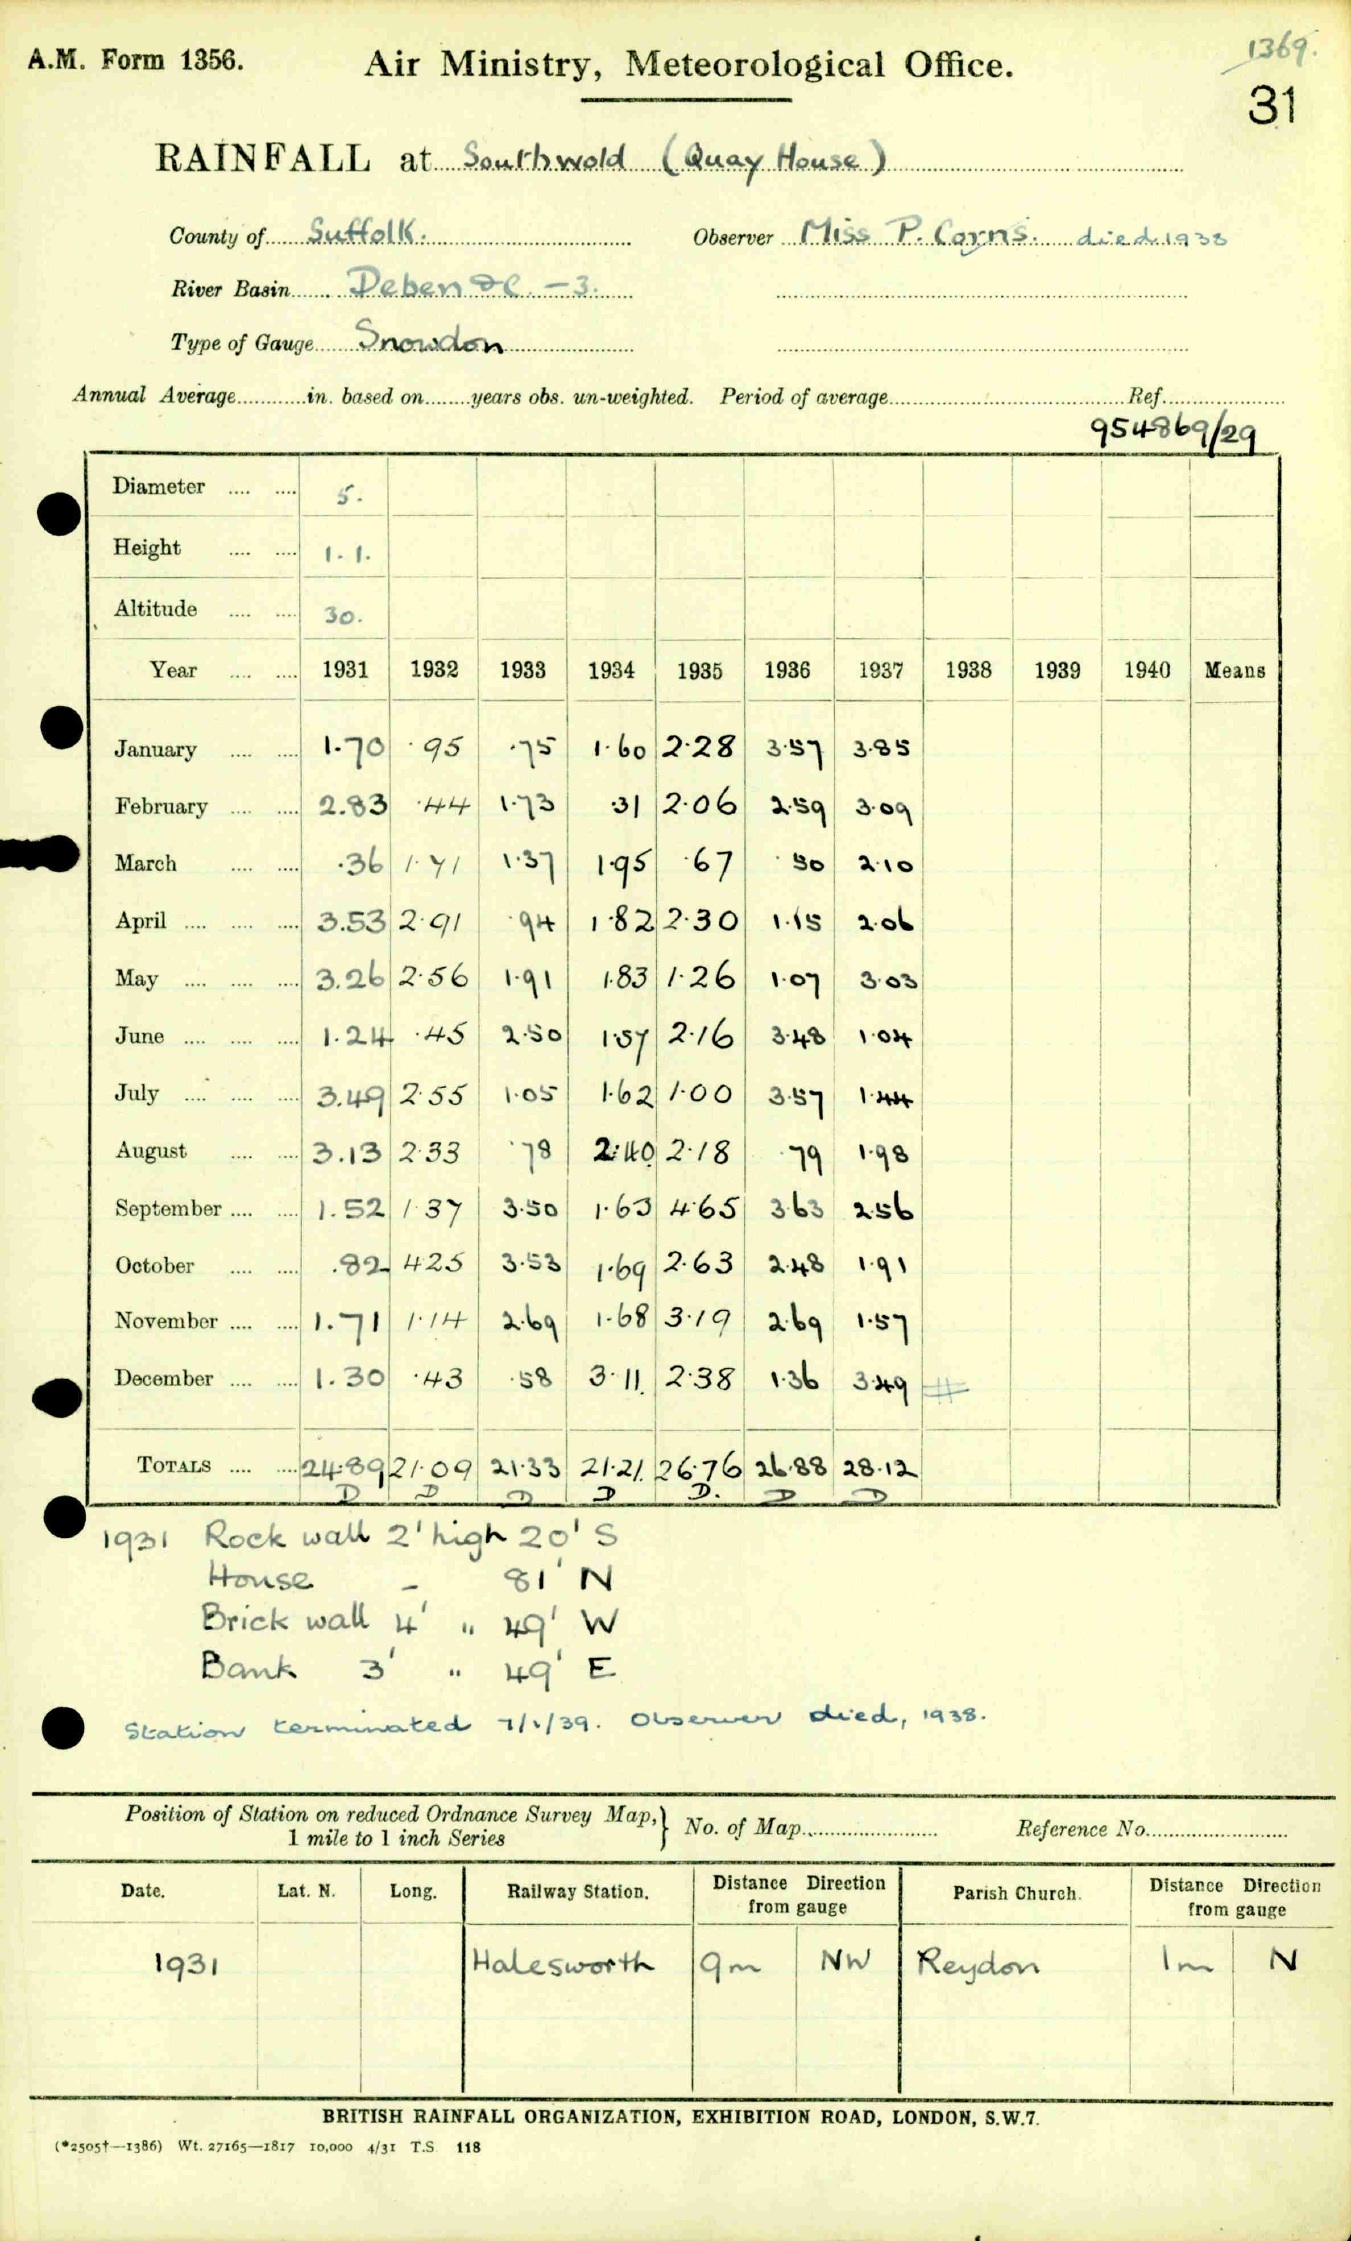 A.M. Form 1356.
Air Ministry, Meteorological Office.
1369.
31
RAINFALL at Southwold (Quay House)
County of Suffolk. Observer Miss P. Corns. died 1938
River Basin Deben &c. -3.
Type of Gauge Snowdon
Annual Average in. based on years obs. un-weighted. Period of average Ref.
954869/29
Diameter 5.
Height 1.1.
Altitude 30.
Year 1931 1932 1933 1934 1935 1936 1937 1938 1939 1940 Means
January 1.70 ·95 ·75 1·60 2·28 3·57 3·85
February 2.83 ·44 1·73 ·31 2·06 2·59 3·09
March ·36 1·71 1·37 1·95 ·67 ·50 2·10
April 3.53 2·91 ·94 1·82 2·30 1·15 2·06
May 3.26 2·56 1·91 1·83 1·26 1·07 3·03
June 1.24 ·45 2·50 1·57 2·16 3·48 1·04
July 3.49 2·55 1·05 1·62 1·00 3·57 1·44
August 3.13 2·33 ·78 2·40 2·18 ·79 1·98
September 1.52 1·37 3·50 1·63 4·65 3·63 2·56
October .82 4·25 3·53 1·69 2·63 2·48 1·91
November 1.71 1·14 2·69 1·68 3·19 2·69 1·57
December 1.30 ·43 ·58 3·11 2·38 1·36 3·49 #
TOTALS 24·89 21·09 21·33 21·21 26·76 26·88 28·12
D D D D D. D D
1931 Rock wall 2' high 20' S
House - 81' N
Brick wall 4' " 49' W
Bank 3' " 49' E
Station terminated 7/1/39. Observer died, 1938.
Position of Station on reduced Ordnance Survey Map, } No. of Map Reference No.
1 mile to 1 inch Series
Date. Lat. N. Long. Railway Station. Distance Direction from gauge Parish Church. Distance Direction from gauge
1931 Halesworth 9m NW Reydon 1m N
BRITISH RAINFALL ORGANIZATION, EXHIBITION ROAD, LONDON, S.W.7.
(*2505†—1386) Wt. 27165—1817 10,000 4/31 T.S 118